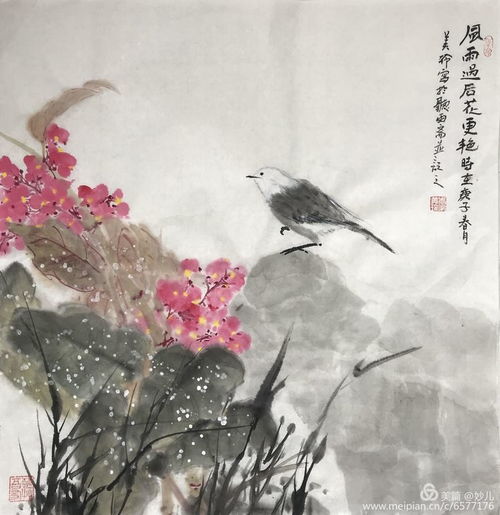 風雨過后花更艳時在庚子春月
美玲写於聽雨斋並記之
美篇 @妙儿
www.meipian.cn/c/6577176